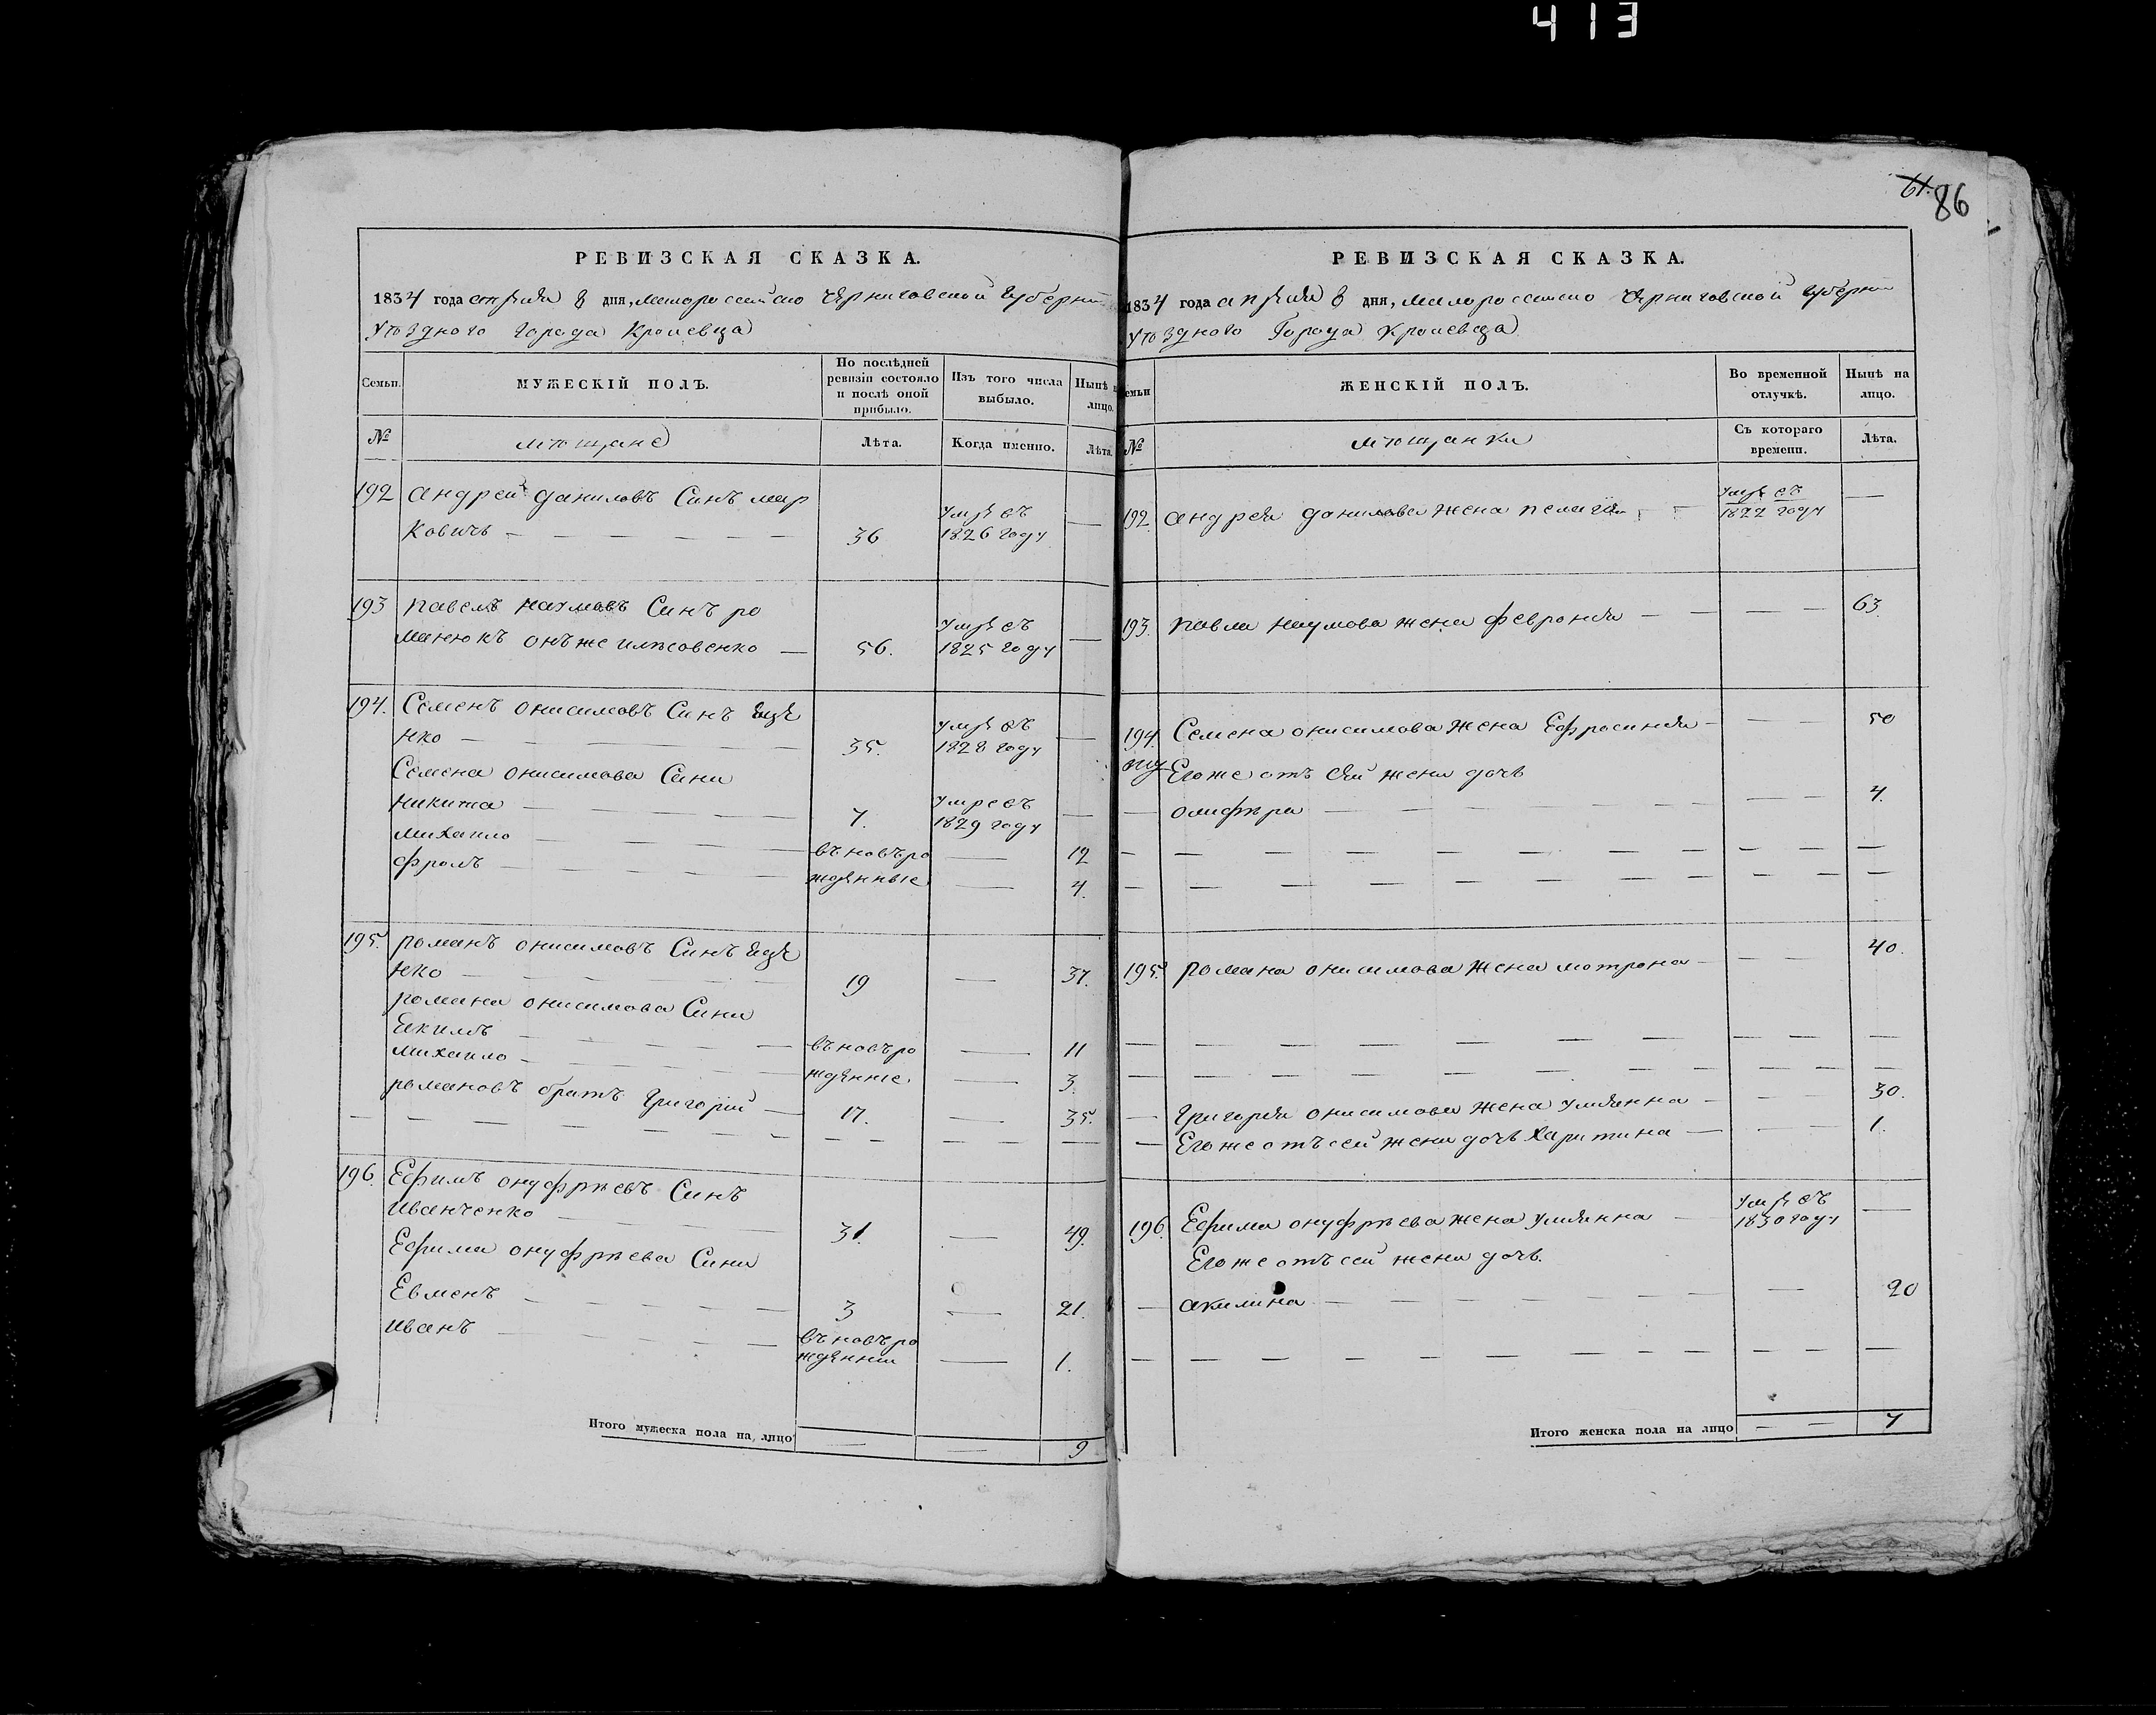 413
61. 86
РЕВИЗСКАЯ СКАЗКА.
1834 года апреля 8 дня, малороссийско Черниговской губернии
уѣздного города Кролевца
Семьи.
МУЖЕСКІЙ ПОЛЪ.
По послѣдней ревизіи состояло и послѣ оной прибыло.
Изъ того числа выбыло.
Нынѣ на лицо.
№
мѣщане
Лѣта.
Когда именно.
Лѣта.
192 андрей даниловъ Синъ мир
ковичъ — 36 умре въ 1826 году —
193 павелъ наумовъ Синъ ро
манюкъ онъже — 56. умре въ 1825 году —
194. Семенъ онисимовъ Синъ
нко — 35. умре въ 1828 году —
Семена онисимова Сини
никита — 7. умре въ 1829 году —
михаило — въ новъро — 12
фролъ — жденные — 4.
195. романъ онисимовъ Синъ
нко — 19 — 37.
романа онисимова Сини
екимъ — въ новъро — 11
михаило — жденние — 3
романовъ братъ Григорій — 17. — 35.
196. Ефимъ онуфріевъ Синъ
иванченко — 31. — 49.
Ефима онуфріева Сини
Евменъ — 3 — 21.
иванъ — въ новъро жденни — 1.
Итого мужеска пола на лицо — — 9
РЕВИЗСКАЯ СКАЗКА.
1834 года апреля 8 дня, малороссийско Черниговской губернии
уѣздного Города Кролевца
семьи
ЖЕНСКІЙ ПОЛЪ.
Во временной отлучкѣ.
Нынѣ на лицо.
№
мѣщанки
Съ котораго времени.
Лѣта.
192. андрея данилова жена пелагия — умре въ 1822 году —
193. павла наумова жена феврония — — 63.
194. Семена онисимова жена Ефросиния — — 50
Егоже отъ сей жени дочь
олифѣра — — 4.
195. романа онисимова жена мотрона — — 40.
— Григория онисимова жена улиянна — — 30.
— Егоже отъ сей жени дочь харитина — — 1.
196. Ефима онуфріева жена улиянна — умре въ 1830 году —
Егоже отъ сей жени дочь.
— акилина — — 20
Итого женска пола на лицо — — 7